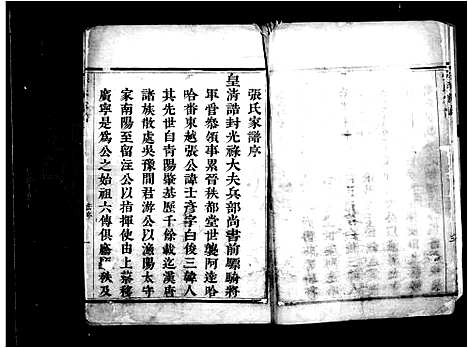 張氏家譜序
皇清誥封光祿大夫兵部尚書前驃騎將
軍管叅領事累晉秩都堂世襲阿達哈
哈番東越張公諱士彥字白俊三韓人
其先世自青陽發基歷千餘載迄漢唐
諸族散處吳豫間君游公以漁陽太守
家南陽至留注公以指揮使由上蔡移
廣寧是為公之始祖六傳俱膴秩及